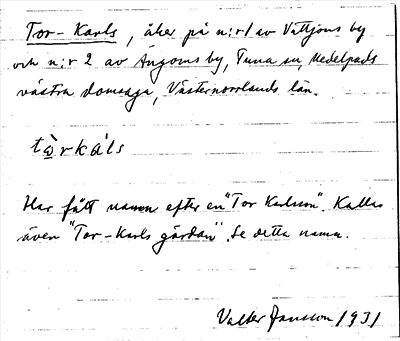 Tor-Karls, åker på n:r 1 av Vattjoms by
och n:r 2 av Ångoms by, Tuna sn, Medelpads
västra domsaga, Västernorrlands län.
tòrkáls
Har fått namn efter en "Tor Karlsson". Kallas
även "Tor-Karls gärdan". Se detta namn.
Valter Jansson 1931